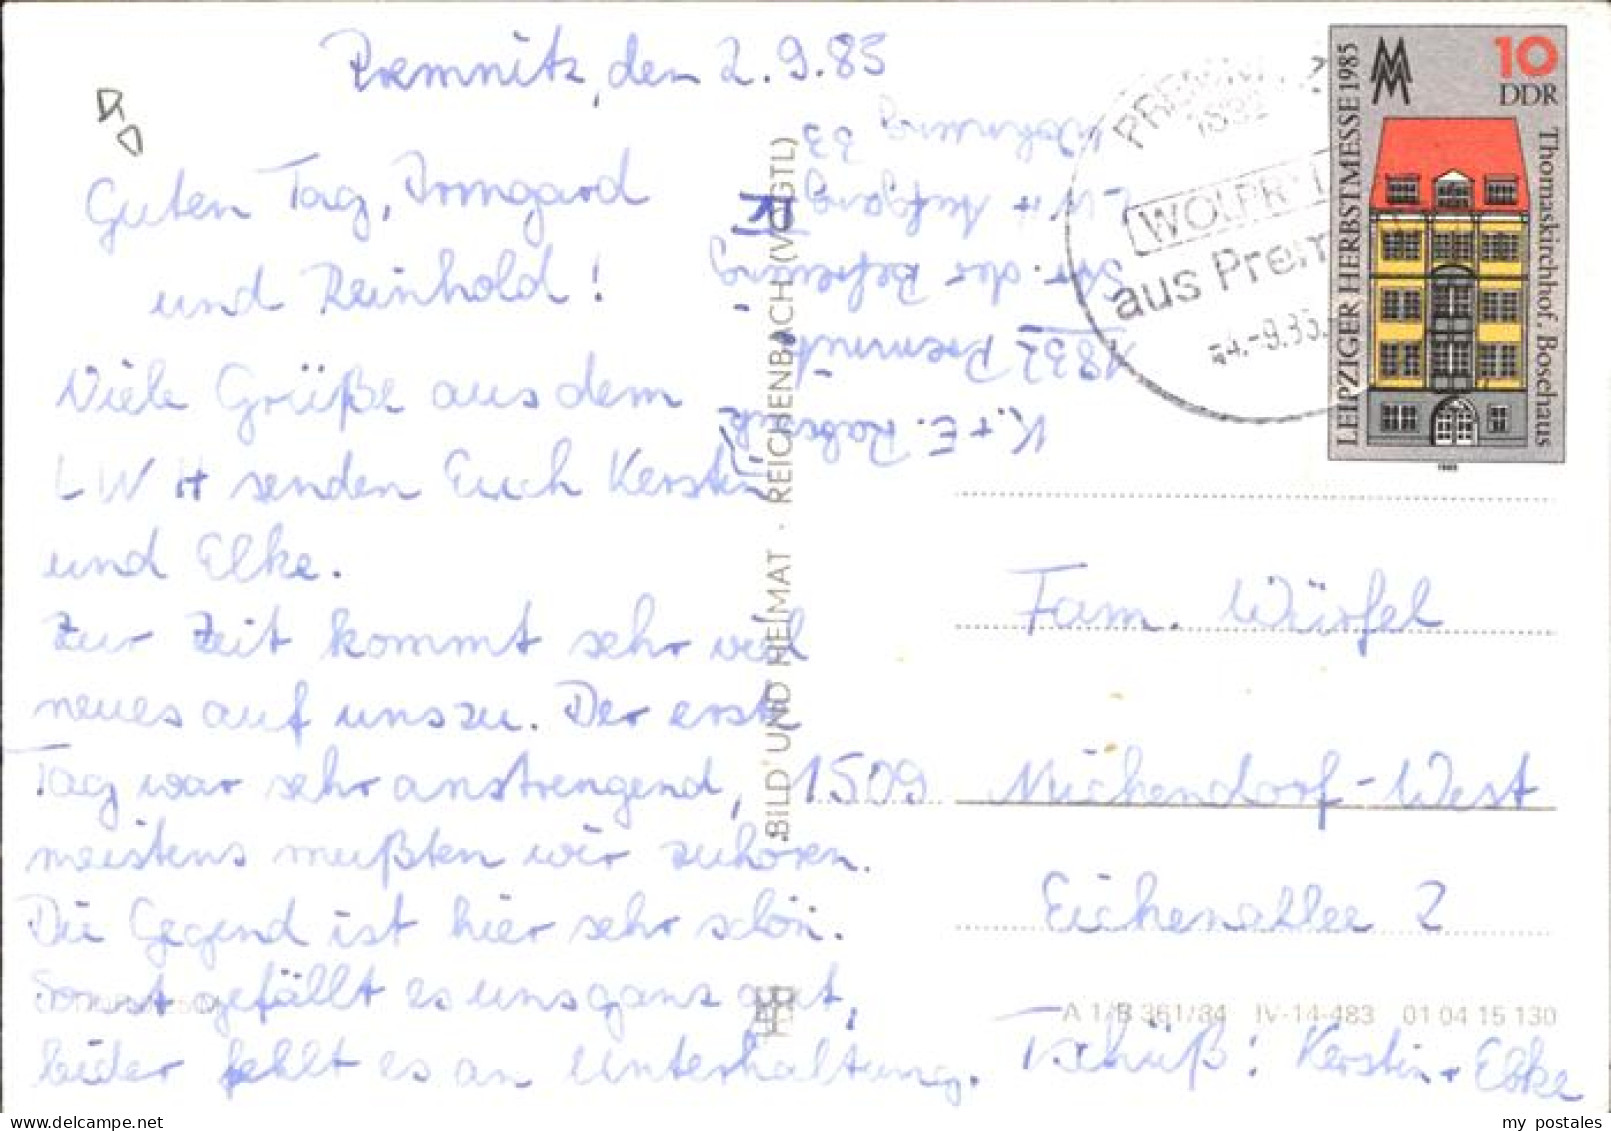 Premnitz, den 2.9.85
Guten Tag, Irmgard
und Reinhold!
Viele Grüße aus dem
LWH senden Euch Kerstin
und Elke.
Zur Zeit kommt sehr viel
neues auf uns zu. Der erste
Tag war sehr anstrengend,
meistens mußten wir zuhören.
Die Gegend ist hier sehr schön.
Sonst gefällt es uns ganz gut,
leider fehlt es an Unterhaltung.
Tschüß! Kerstin + Elke
K. + E.
1832 Premnitz
Str. der Befreiung
LWH Aufgang IV
Wohnung 33
BILD UND HEIMAT · REICHENBACH (VOGTL)
PREMNITZ
1832
aus Prem
LEIPZIGER HERBSTMESSE 1985
MM
10
DDR
Thomaskirchhof, Bosehaus
1985
Fam. Würfel
1509 Michendorf-West
Eichenallee 2
A 1/B 361/84 IV-14-483 01 04 15 130
my postales